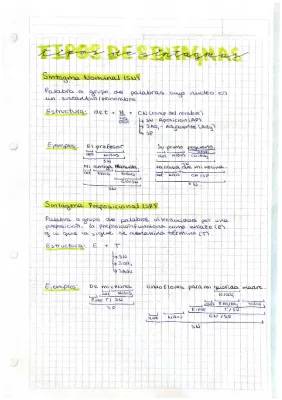 TIPOS DE SINTAGMAS
Sintagma Nominal (SN)
Palabra o grupo de palabras cuyo núcleo es
un sustantivo/pronombre
Estructura: det + N + CN (comp del nombre)
SN - Aposición (AP)
SAdj - Adyacente (Ady)
SP
Ejemplos: El profesor Su primo pequeño
det núcleo det núcleo
SN
Mi amiga
det núcleo
SN SN
Sintagma Preposicional (SP)
Palabra o grupo de palabras introducidas por una
preposición, la preposición funciona como enlace (E)
y lo que la sigue se denomina término (T)
Estructura: E + T
SN
SAdj
SAdv
Ejemplos: De mi prima Unas flores para mi querida madre
det núcleo
E/prep T/SN
SP
det núcleo CN/SP
SN